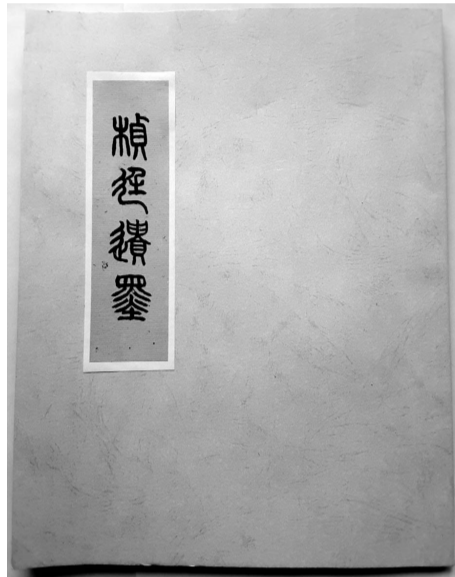 楨廷遺墨